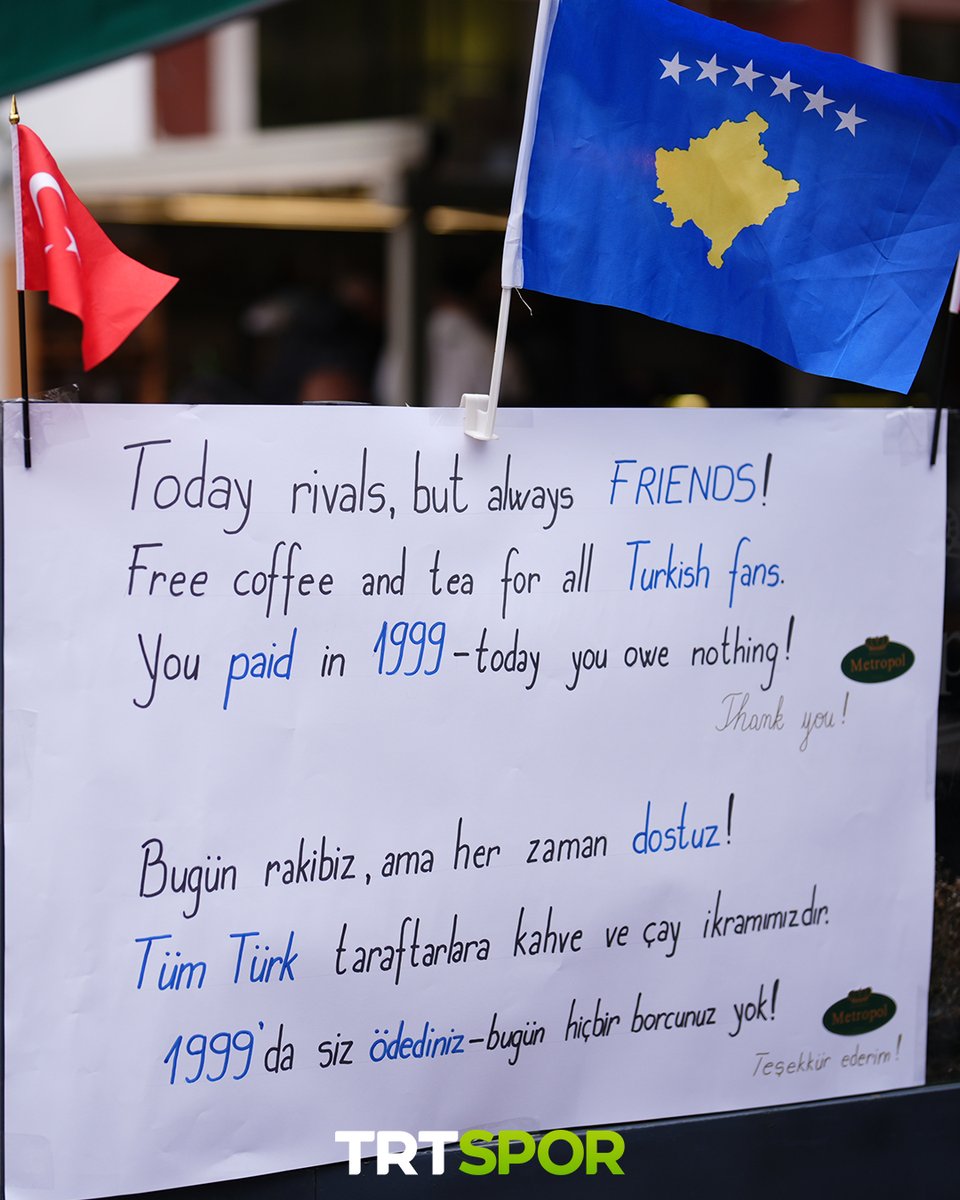 Today rivals, but always FRIENDS!
Free coffee and tea for all Turkish fans.
You paid in 1999-today you owe nothing!
Metropol
Thank you!
Bugün rakibiz, ama her zaman dostuz!
Tüm Türk taraftarlara kahve ve çay ikramımızdır.
1999'da siz ödediniz-bugün hiçbir borcunuz yok!
Metropol
Teşekkür ederim!
TRTSPOR